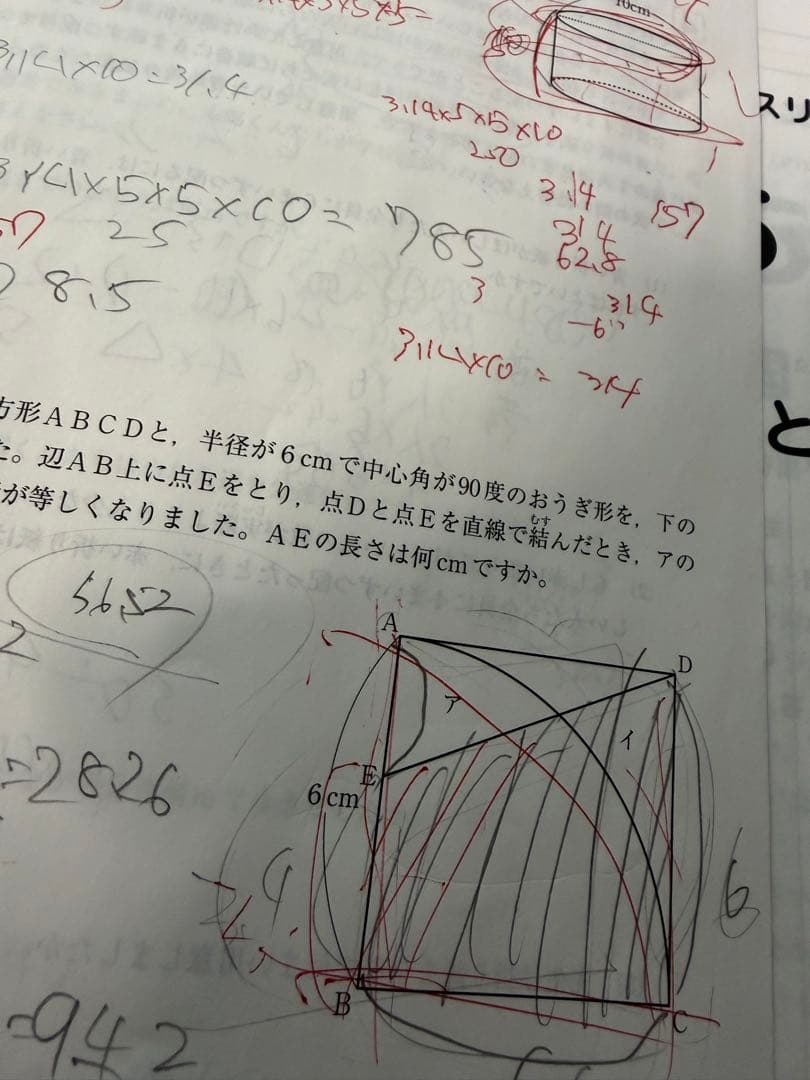 10cm
3.14×10=31.4
3.14×5×5×10
250
3.14×5×5×10=785
25
3.14
314
62.8
157
28.5
3
314
-6
3.14×10=314
スリ
と
方形ＡＢＣＤと，半径が６cmで中心角が90度のおうぎ形を，下の
た。辺ＡＢ上に点Ｅをとり，点Ｄと点Ｅを直線で結んだとき，アの
むす
が等しくなりました。ＡＥの長さは何cmですか。
56.52
2
=2826
=942
A
D
ア
イ
E
6cm
6
B
C